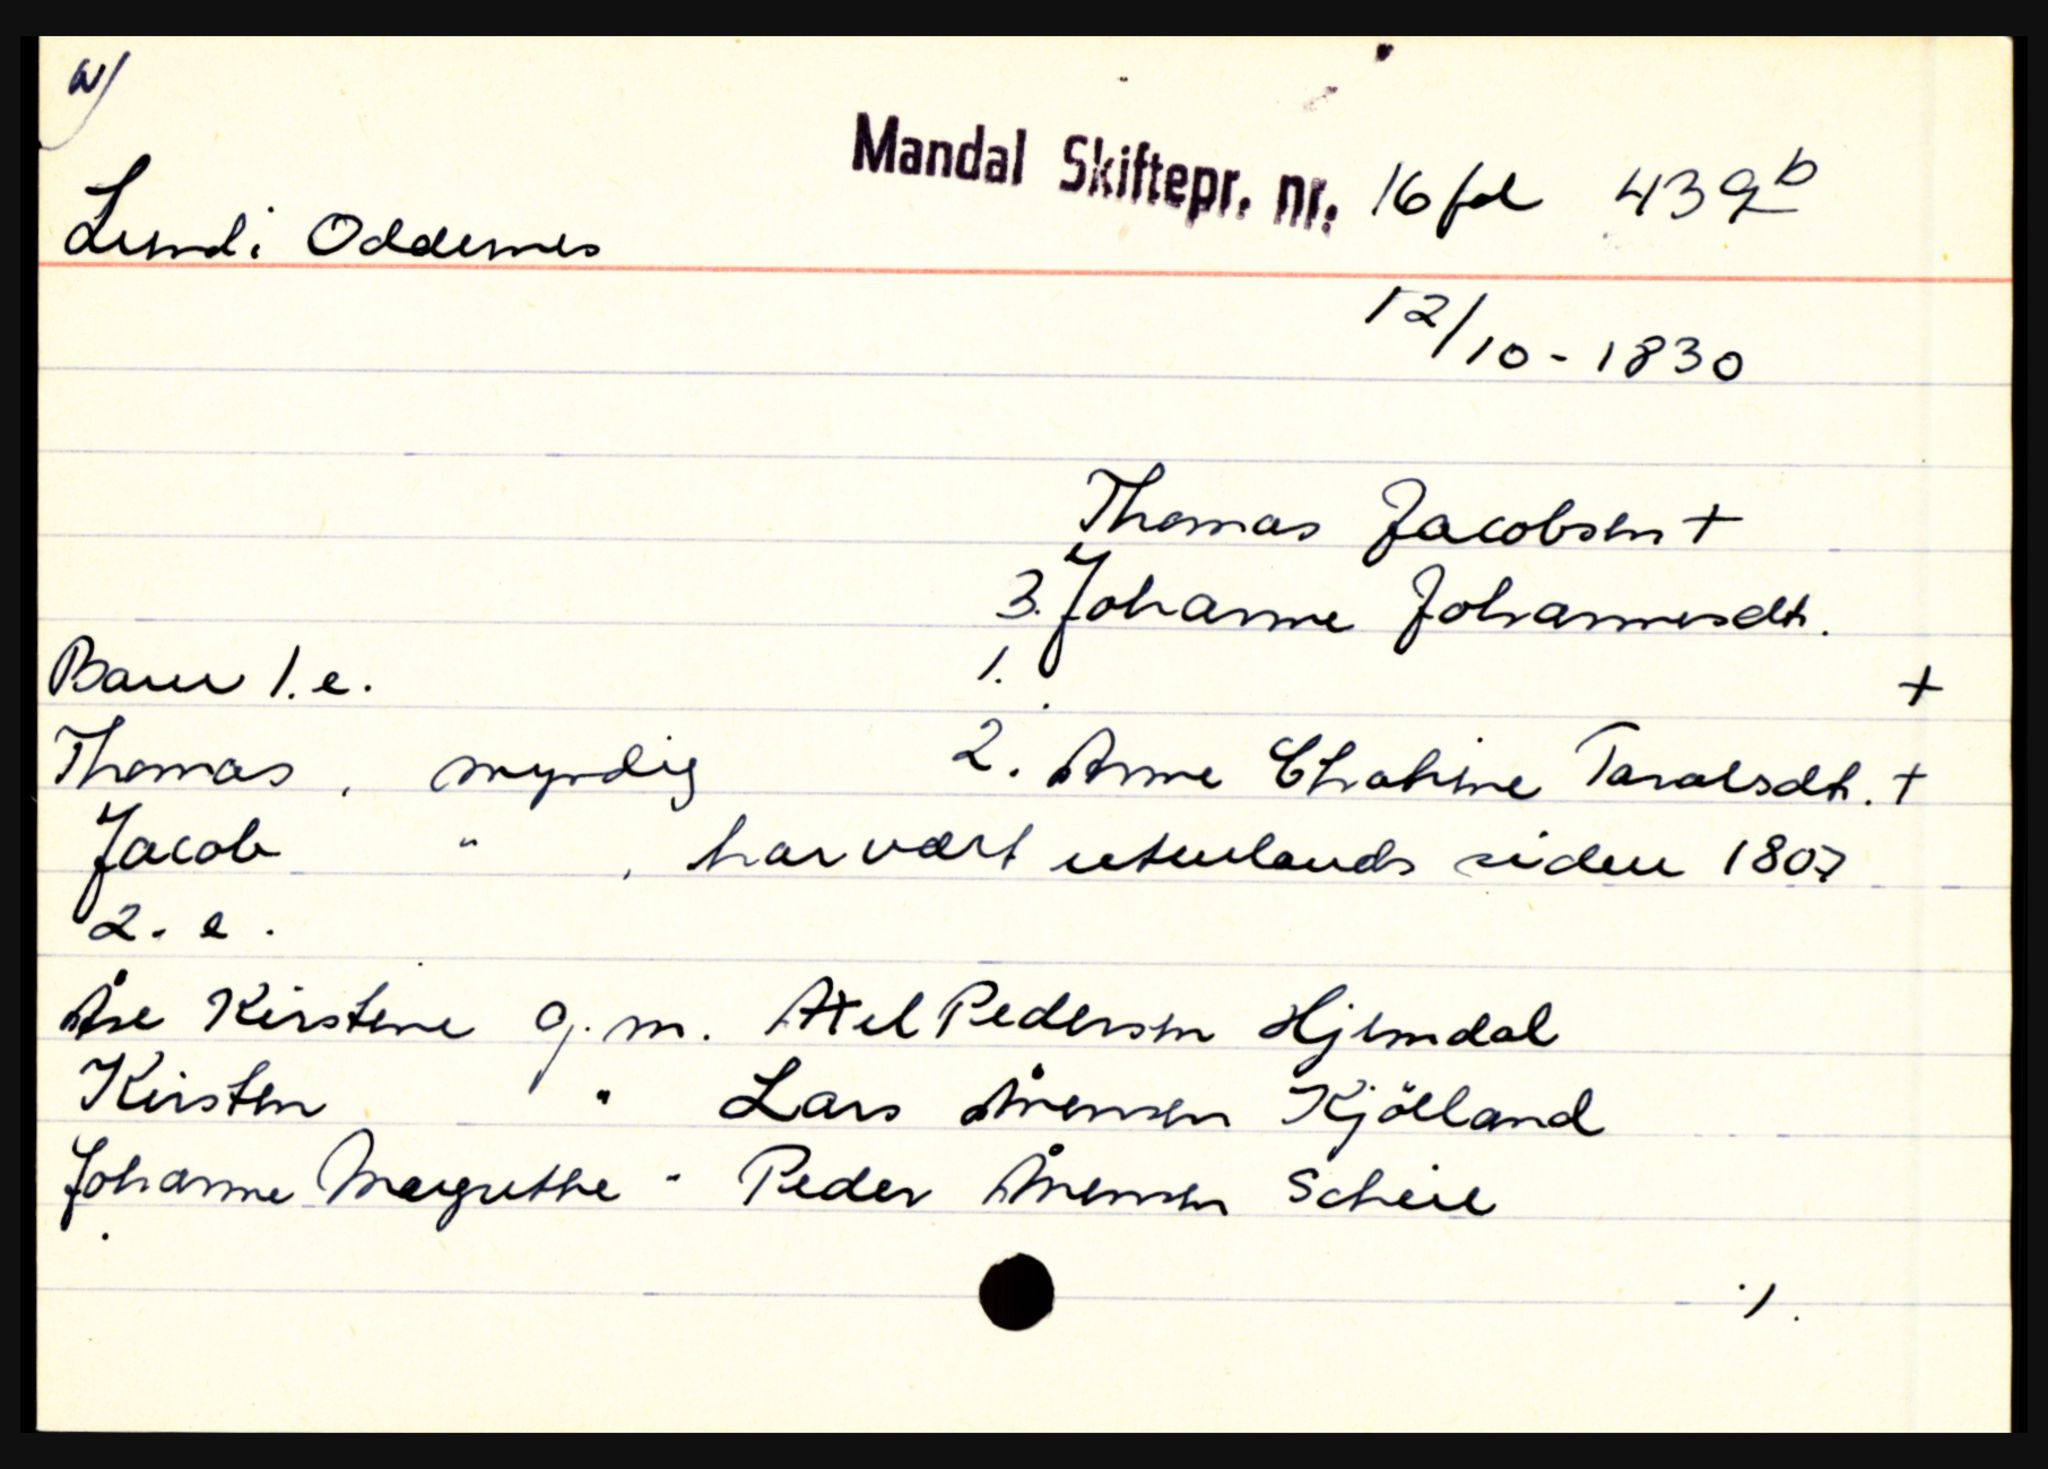 a)
Mandal Skiftepr. nr. 16 fol 439b
Lund i Oddernes
12/10-1830
Thomas Jacobsen +
3. Johanne Johannesdt.
Barn 1. e. 1. +
Thomas, myndig 2. Anne Cathrine Taraldsdt. +
Jacob " , har vært utenlands siden 1807
2. e.
Åse Kirstine g. m. Axel Pedersen Hjemdal
Kirsten " Lars Ånensen Kjölland
Johanne Margrethe " Peder Ånensen Scheie
./.